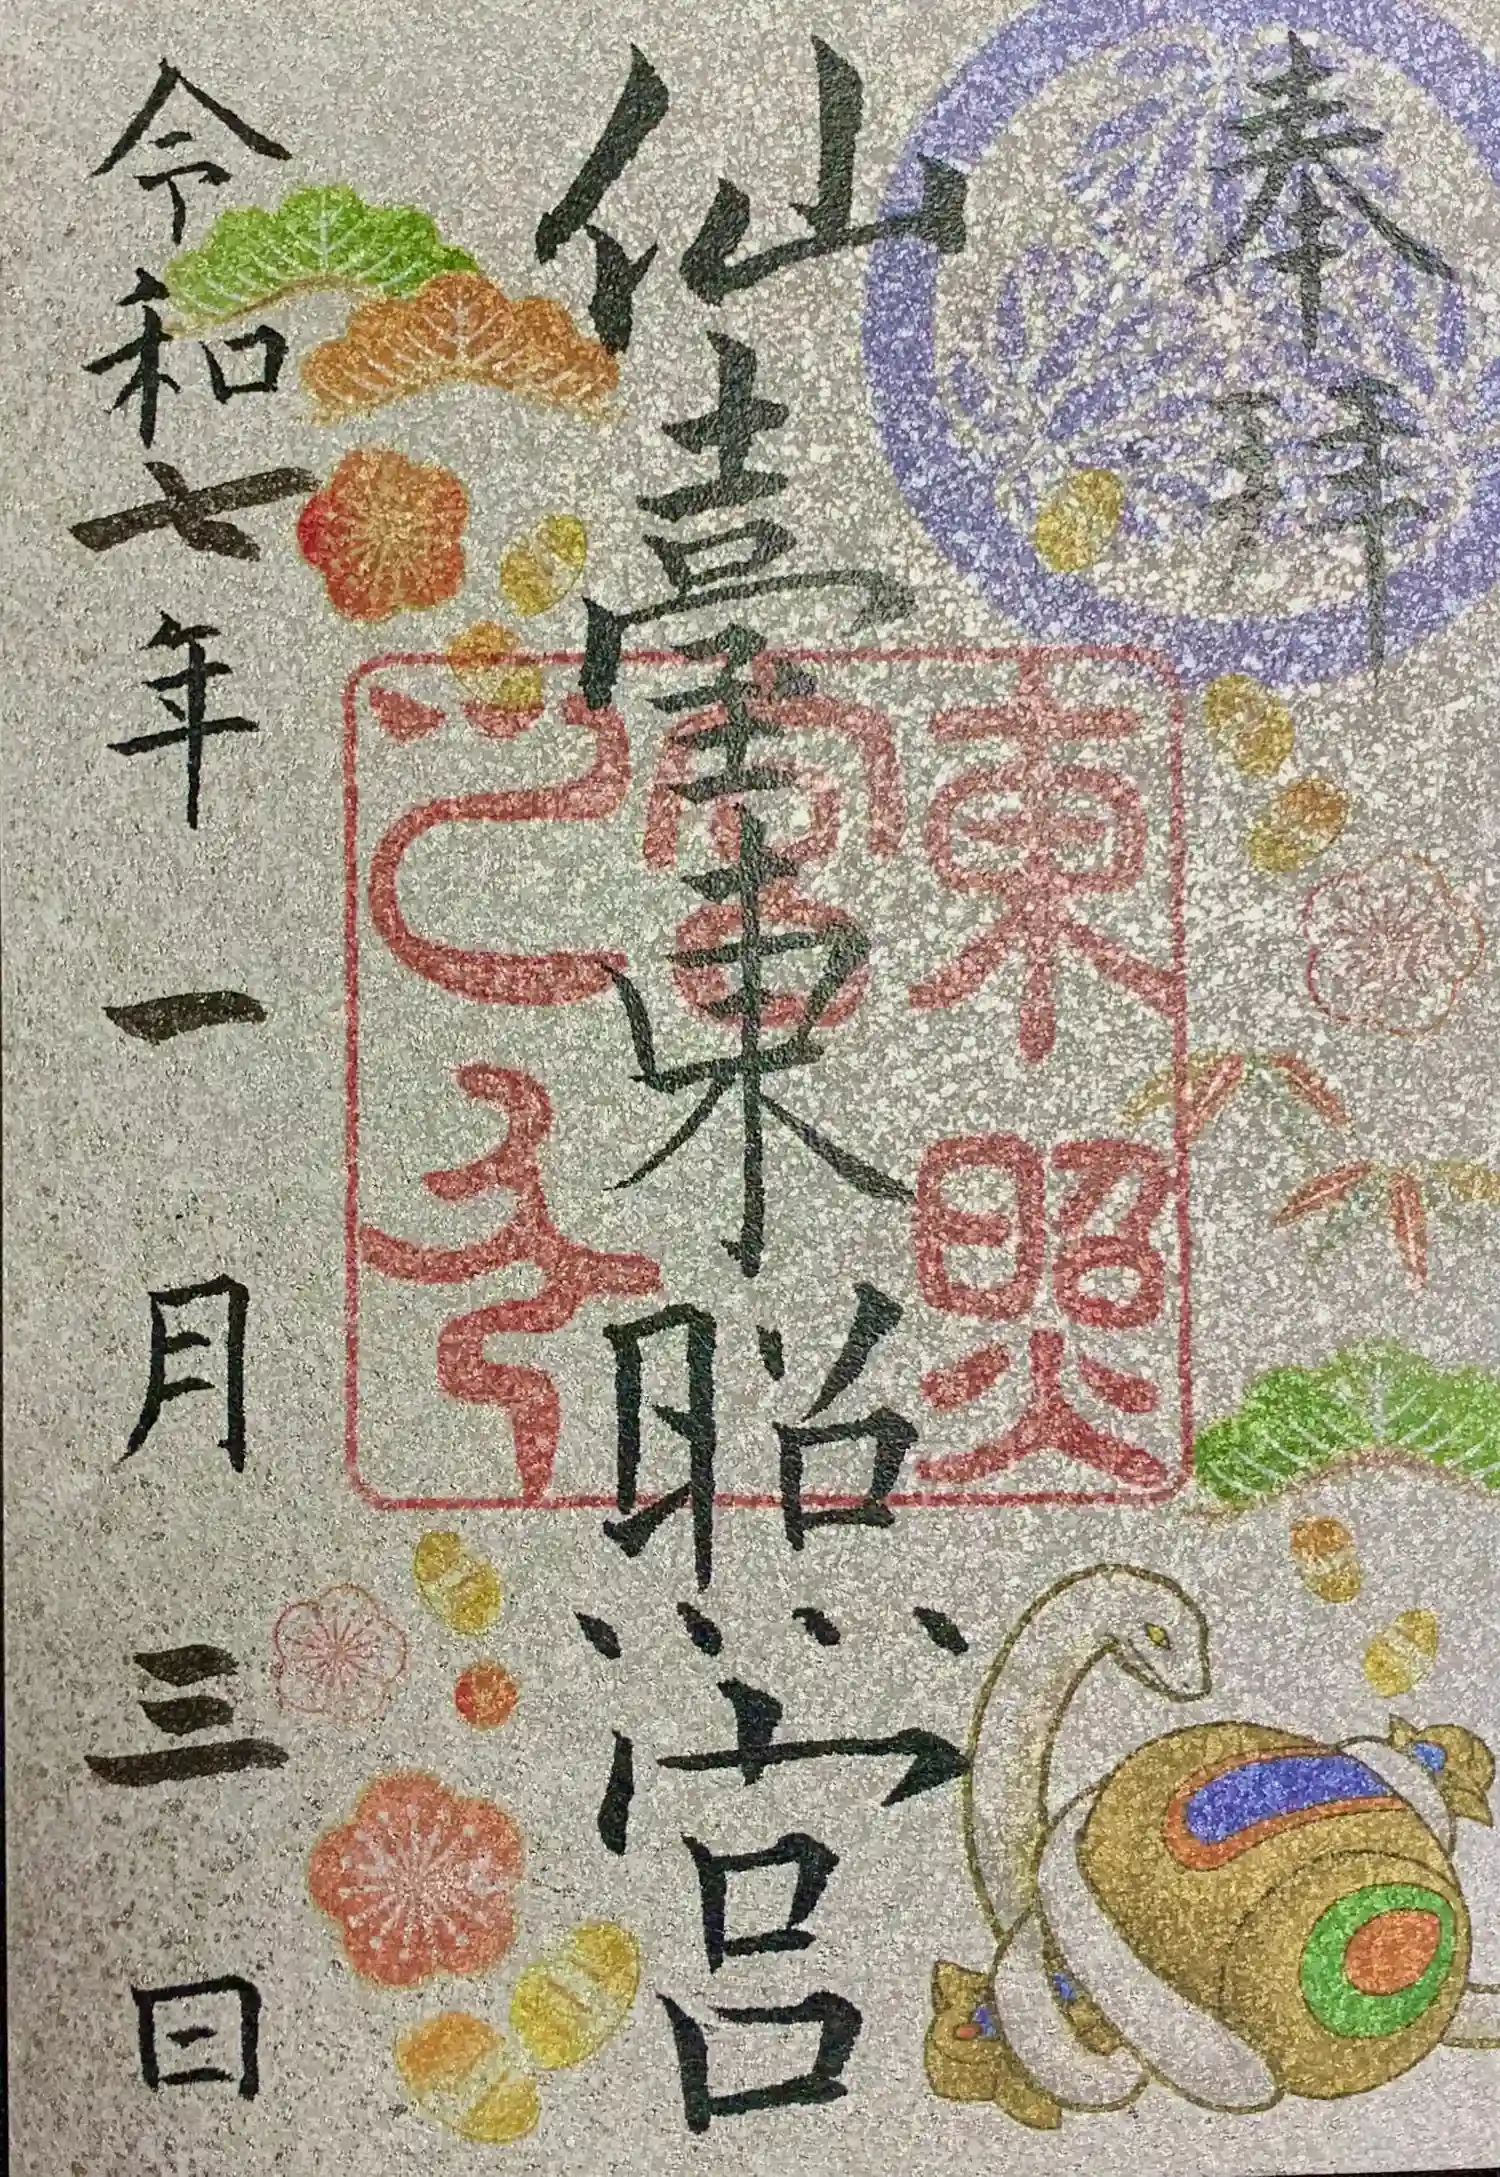 奉拝
仙臺東照宮
東照宮之印
令和七年一月三日